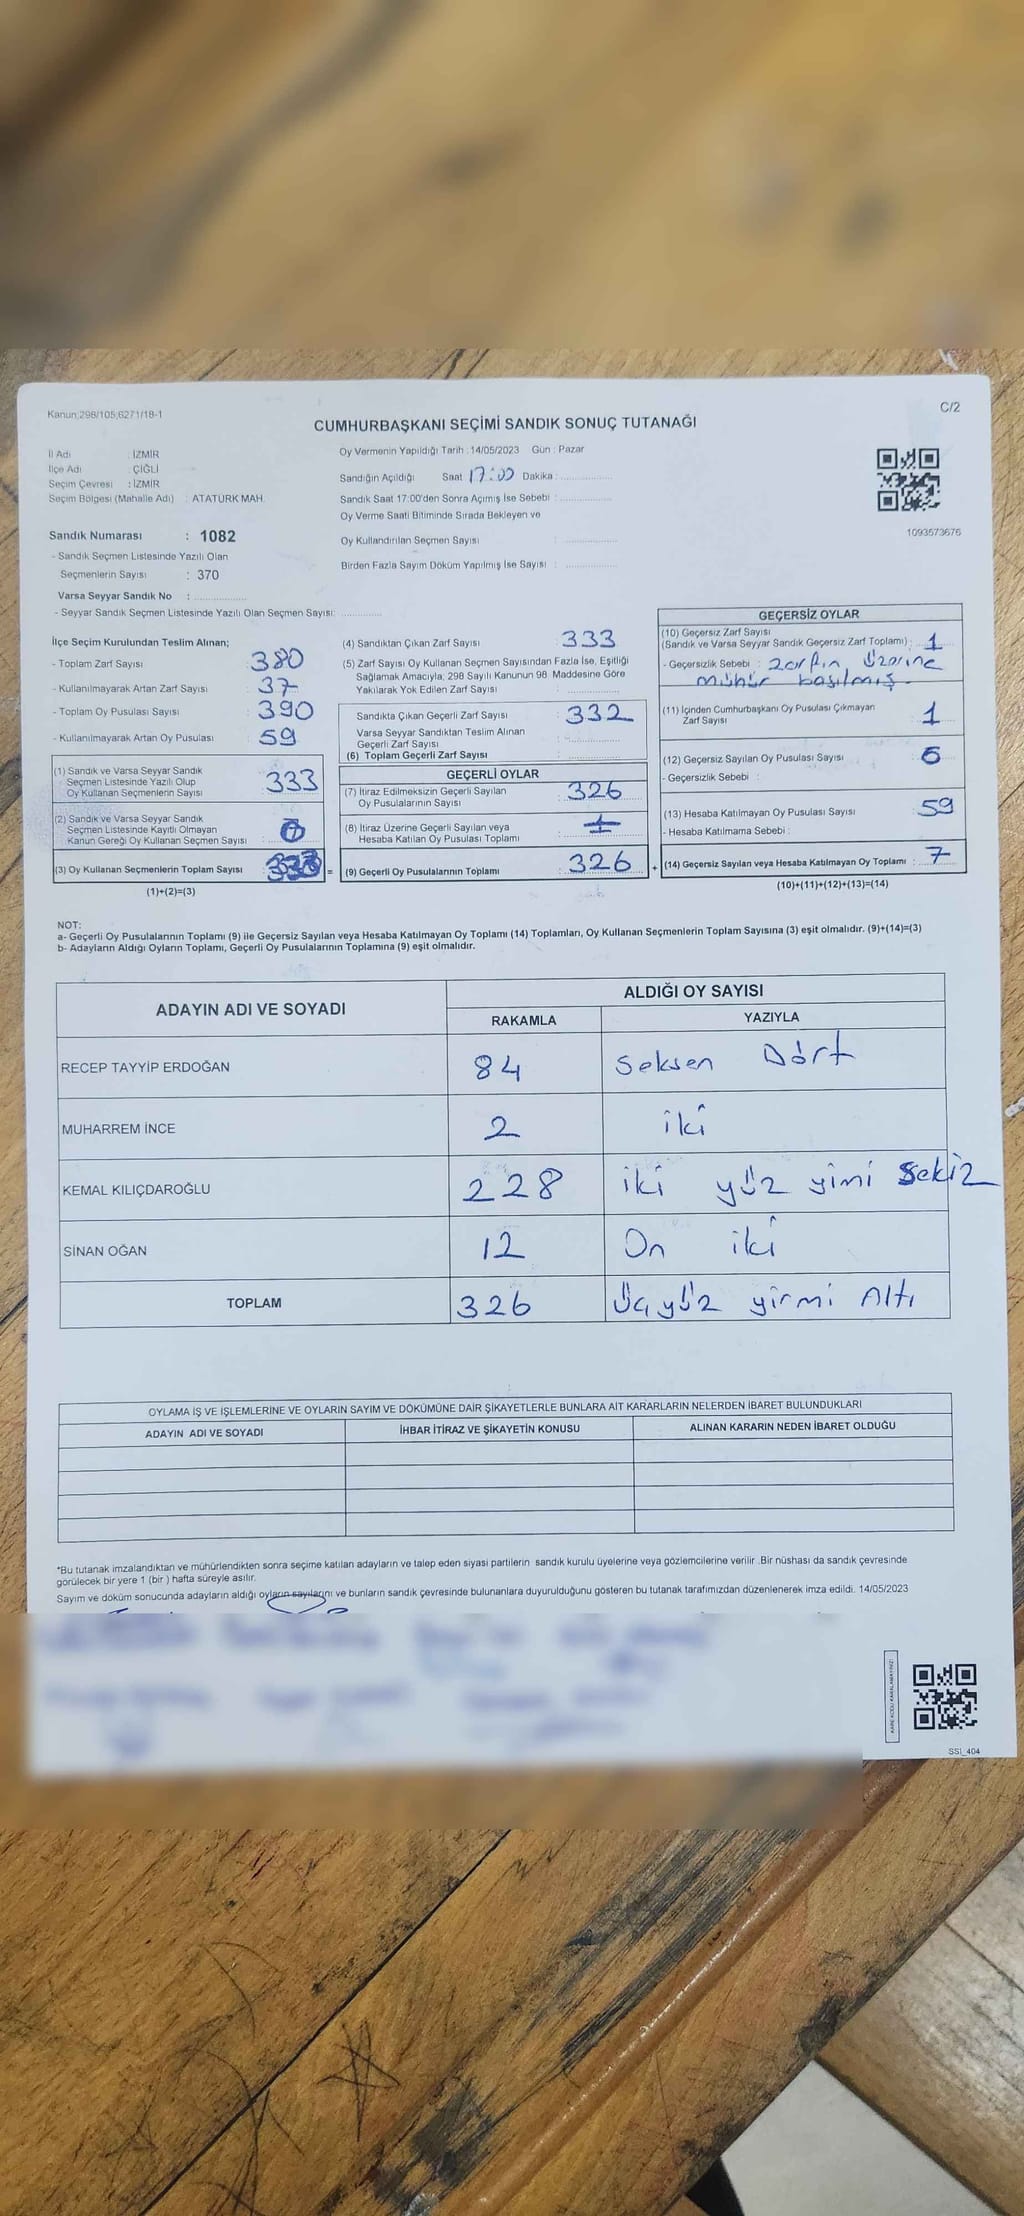 Kanun;298/105;6271/18-1
C/2
CUMHURBAŞKANI SEÇİMİ SANDIK SONUÇ TUTANAĞI
İl Adı : İZMİR
İlçe Adı : ÇİĞLİ
Seçim Çevresi : İZMİR
Seçim Bölgesi (Mahalle Adı) : ATATÜRK MAH.
Oy Vermenin Yapıldığı Tarih : 14/05/2023 Gün : Pazar
Sandığın Açıldığı Saat 17:00 Dakika :
Sandık Saat 17:00'den Sonra Açımış İse Sebebi :
Oy Verme Saati Bitiminde Sırada Bekleyen ve
Oy Kullandırılan Seçmen Sayısı :
Birden Fazla Sayım Döküm Yapılmış İse Sayısı :
1093573676
Sandık Numarası : 1082
- Sandık Seçmen Listesinde Yazılı Olan
Seçmenlerin Sayısı : 370
Varsa Seyyar Sandık No :
- Seyyar Sandık Seçmen Listesinde Yazılı Olan Seçmen Sayısı:
İlçe Seçim Kurulundan Teslim Alınan;
- Toplam Zarf Sayısı : 380
- Kullanılmayarak Artan Zarf Sayısı : 37
- Toplam Oy Pusulası Sayısı : 390
- Kullanılmayarak Artan Oy Pusulası : 59
(1) Sandık ve Varsa Seyyar Sandık
Seçmen Listesinde Yazılı Olup
Oy Kullanan Seçmenlerin Sayısı : 333
(2) Sandık ve Varsa Seyyar Sandık
Seçmen Listesinde Kayıtlı Olmayan
Kanun Gereği Oy Kullanan Seçmen Sayısı :
(3) Oy Kullanan Seçmenlerin Toplam Sayısı : 333 =
(1)+(2)=(3)
(4) Sandıktan Çıkan Zarf Sayısı : 333
(5) Zarf Sayısı Oy Kullanan Seçmen Sayısından Fazla İse, Eşitliği
Sağlamak Amacıyla; 298 Sayılı Kanunun 98 Maddesine Göre
Yakılarak Yok Edilen Zarf Sayısı :
Sandıkta Çıkan Geçerli Zarf Sayısı : 332
Varsa Seyyar Sandıktan Teslim Alınan
Geçerli Zarf Sayısı :
(6) Toplam Geçerli Zarf Sayısı :
GEÇERLİ OYLAR
(7) İtiraz Edilmeksizin Geçerli Sayılan
Oy Pusulalarının Sayısı : 326
(8) İtiraz Üzerine Geçerli Sayılan veya
Hesaba Katılan Oy Pusulası Toplamı :
(9) Geçerli Oy Pusulalarının Toplamı : 326 +
GEÇERSİZ OYLAR
(10) Geçersiz Zarf Sayısı
(Sandık ve Varsa Seyyar Sandık Geçersiz Zarf Toplamı) : 1
- Geçersizlik Sebebi : zarfın üzerine
mühür basılmış.
(11) İçinden Cumhurbaşkanı Oy Pusulası Çıkmayan
Zarf Sayısı : 1
(12) Geçersiz Sayılan Oy Pusulası Sayısı :
- Geçersizlik Sebebi :
(13) Hesaba Katılmayan Oy Pusulası Sayısı : 59
- Hesaba Katılmama Sebebi :
(14) Geçersiz Sayılan veya Hesaba Katılmayan Oy Toplamı : 7
(10)+(11)+(12)+(13)=(14)
NOT:
a- Geçerli Oy Pusulalarının Toplamı (9) ile Geçersiz Sayılan veya Hesaba Katılmayan Oy Toplamı (14) Toplamları, Oy Kullanan Seçmenlerin Toplam Sayısına (3) eşit olmalıdır. (9)+(14)=(3)
b- Adayların Aldığı Oyların Toplamı, Geçerli Oy Pusulalarının Toplamına (9) eşit olmalıdır.
ADAYIN ADI VE SOYADI
ALDIĞI OY SAYISI
RAKAMLA YAZIYLA
RECEP TAYYİP ERDOĞAN 84 Seksen Dört
MUHARREM İNCE 2 iki
KEMAL KILIÇDAROĞLU 228 iki yüz yimi Sekiz
SİNAN OĞAN 12 On iki
TOPLAM 326 Üçyüz yirmi Altı
OYLAMA İŞ VE İŞLEMLERİNE VE OYLARIN SAYIM VE DÖKÜMÜNE DAİR ŞİKAYETLERLE BUNLARA AİT KARARLARIN NELERDEN İBARET BULUNDUKLARI
ADAYIN ADI VE SOYADI İHBAR İTİRAZ VE ŞİKAYETİN KONUSU ALINAN KARARIN NEDEN İBARET OLDUĞU
*Bu tutanak imzalandıktan ve mühürlendikten sonra seçime katılan adayların ve talep eden siyasi partilerin sandık kurulu üyelerine veya gözlemcilerine verilir .Bir nüshası da sandık çevresinde
görülecek bir yere 1 (bir ) hafta süreyle asılır.
Sayım ve döküm sonucunda adayların aldığı oyların sayılarını ve bunların sandık çevresinde bulunanlara duyurulduğunu gösteren bu tutanak tarafımızdan düzenlenerek imza edildi. 14/05/2023
KARE KODU KARALAMAYINIZ!
SSİ_404